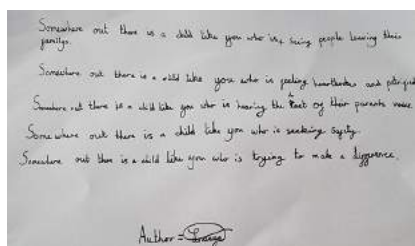 Somewhere out there is a child like you who is seeing people leaving their
family.
Somewhere out there is a child like you who is feeling heartbroken and petrified
Somewhere out there is a child like you who is hearing the of their parents voice.
Somewhere out there is a child like you who is seeking safety.
Somewhere out there is a child like you who is trying to make a difference.
Author =